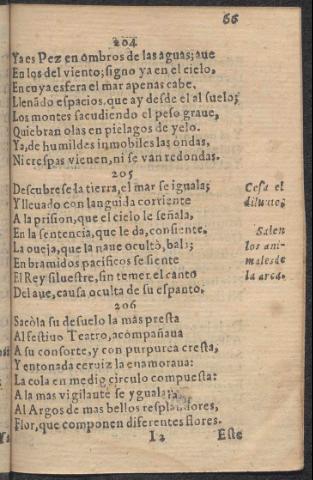 66
204
Ya es Pez en ombros de las aguas; aue
En los del viento; signo ya en el cielo,
En cuya esfera el mar apenas cabe,
Llenãdo espacios, que ay desde el al suelo;
Los montes sacudiendo el peso graue,
Quiebran olas en pielagos de yelo.
Ya, de humildes inmobiles las ondas,
Ni crespas vienen, ni se van redondas.
205
Descubrese la tierra, el mar se iguala;
Y lleuado con languida corriente
A la prision, que el cielo le señala,
En la sentencia, que le da, consiente,
La oueja, que la naue ocultò, bala;
En bramidos pacificos se siente
El Rey siluestre, sin temer el canto
Del aue, causa oculta de su espanto.
Cesa el
diluuio;
Salen
los ani-
males de
la arca.
206
Sacòla su desuelo la màs presta
Al festiuo Teatro, acompañaua
A su consorte, y con purpurea cresta,
Y entonada ceruiz la enamoraua:
La cola en medio circulo compuesta:
A la mas vigilante se ygualaua
Al Argos de mas bellos resplandores,
Flor, que componen diferentes flores.
I 2
Este